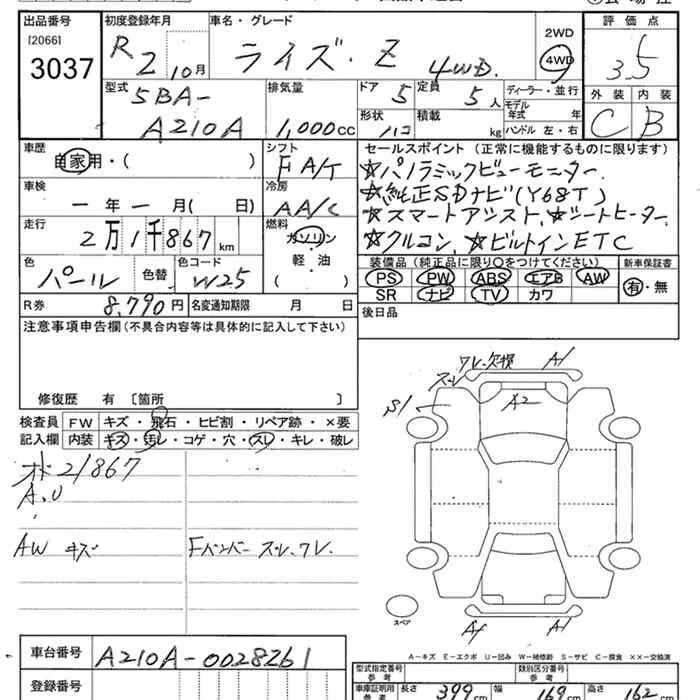 出品番号 初度登録年月 車名・グレード 2WD 評価点
[2066]
3037 R2 10月 ライズ・Z 4WD. 4WD 3.5
型式 排気量 ドア 定員 ディーラー・並行 外装 内装
5BA- 5 5人 モデル年式 年
A210A 1,000cc 形状 ハコ 積載 kg ハンドル 左・右 C B
車歴 自家用・( ) シフト FA/T セールスポイント (正常に機能するものに限ります)
☆パノラミックビューモニター.
車検 冷房 ☆純正SDナビ(Y68T)
ー年ー月( 日) AA/C ☆スマートアシスト、☆シートヒーター.
走行 燃料 ☆クルコン、☆ビルトインETC
2万1千867km ガソリン
色 パール 色替 色コード W25 軽・油 ( ) 装備品(純正品に限り○をつけてください) 新車保証書
PS PW ABS エアB AW 有・無
SR ナビ TV カワ
R券 8,790円 名変通知期限 月 日 後日品
注意事項申告欄(不具合内容等は具体的に記入して下さい)
修復歴 有〔箇所 〕
ワレ・欠損 A1
スレ
S1 A2
検査員 FW キズ・飛石・ヒビ割・リペア跡・×要
記入欄 内装 キズ・汚レ・コゲ・穴・スレ・キレ・破レ
オド21867
A.U
AW キズ Fバンパー スレ、ワレ
スペア
A1
A-キズ E-エクボ U-凹み W-補修跡 S-サビ C-腐食 ××-交換済
車台番号 A210A-0028261
型式指定番号 参考 類別区分番号 参考
登録番号
車庫証明用 参考 長さ 399cm 幅 169cm 高さ 162cm